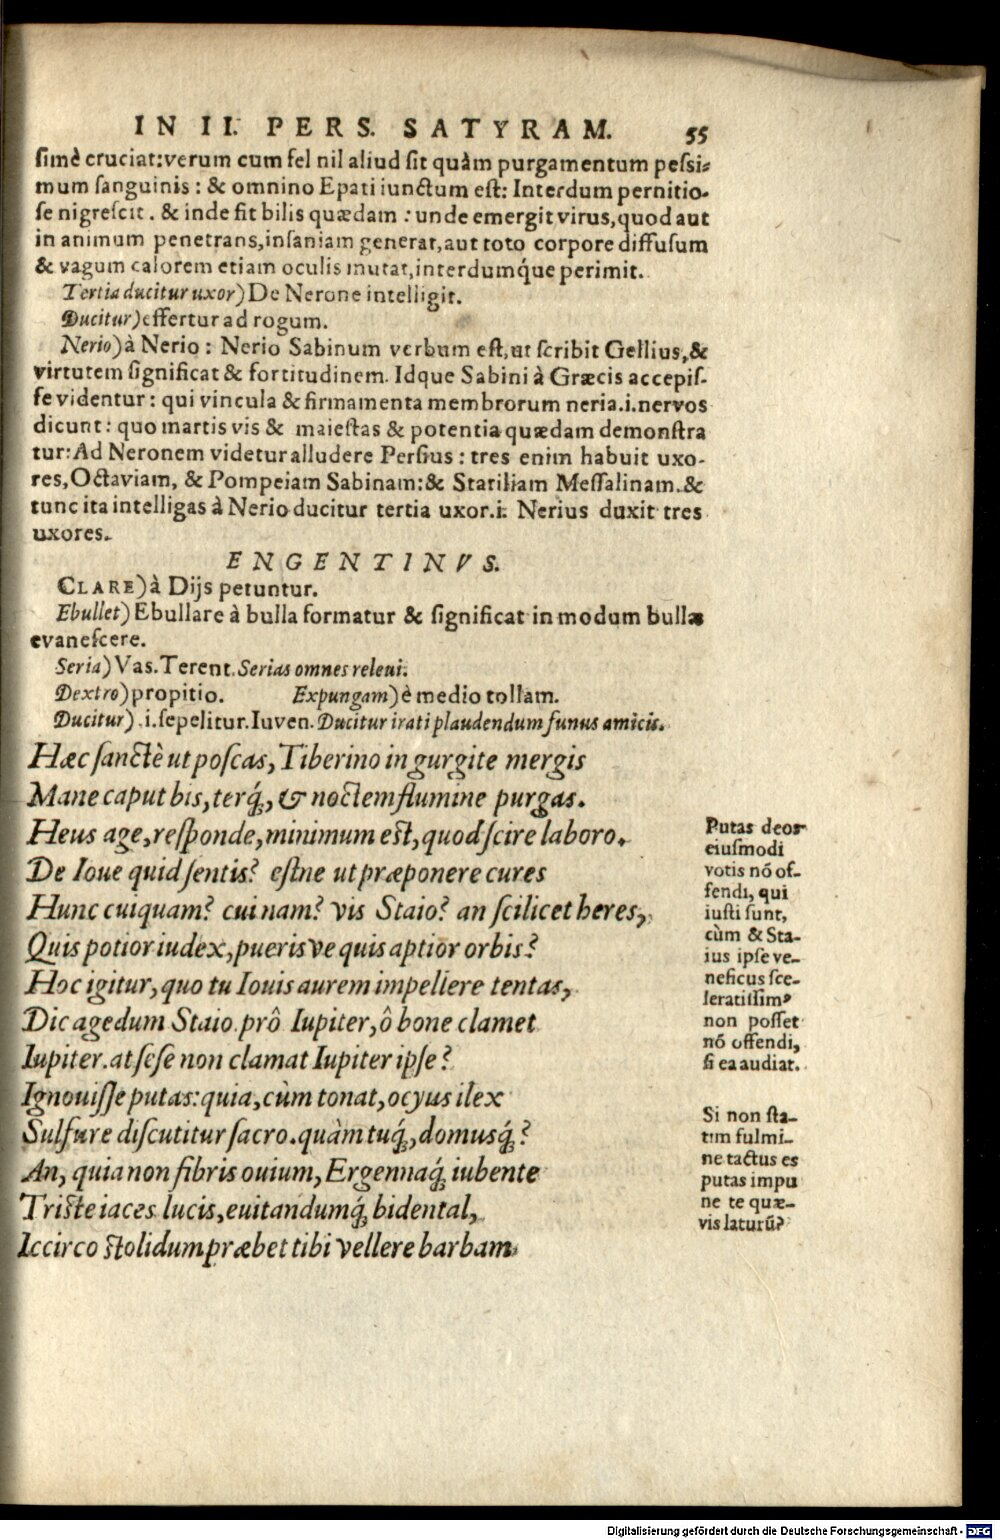 IN II. PERS. SATYRAM. 55
simè cruciat:verum cum fel nil aliud sit quàm purgamentum pessi-
mum sanguinis : & omnino Epati iunctum est: Interdum pernitio-
se nigrescit . & inde fit bilis quædam : unde emergit virus,quod aut
in animum penetrans,insaniam generat,aut toto corpore diffusum
& vagum calorem etiam oculis mutat,interdumq́ue perimit.
Tertia ducitur uxor) De Nerone intelligit.
Ducitur)effertur ad rogum.
Nerio) à Nerio : Nerio Sabinum verbum est,ut scribit Gellius,&
virtutem significat & fortitudinem. Idque Sabini à Græcis accepis-
se videntur : qui vincula & firmamenta membrorum neria.i.nervos
dicunt : quo martis vis & maiestas & potentia quædam demonstra
tur:Ad Neronem videtur alludere Persius : tres enim habuit uxo-
res,Octaviam, & Pompeiam Sabinam:& Statiliam Messalinam.&
tunc ita intelligas à Nerio ducitur tertia uxor.i. Nerius duxit tres
uxores.
ENGENTINVS.
CLARE) à Dijs petuntur.
Ebullet) Ebullare à bulla formatur & significat in modum bullæ
evanescere.
Seria) Vas.Terent.Serias omnes releui.
Dextro) propitio. Expungam) è medio tollam.
Ducitur) .i.sepelitur.Iuven.Ducitur irati plaudendum funus amicis.
Hæc sanctè ut poscas, Tiberino in gurgite mergis
Mane caput bis, terq́, & noctem flumine purgas.
Heus age, responde, minimum est, quod scire laboro.
De Ioue quid sentis? estne ut præponere cures
Hunc cuiquam? cui nam? vis Staio? an scilicet heres,
Quis potior iudex, puerisve quis aptior orbis?
Hoc igitur, quo tu Iouis aurem impellere tentas,
Dic agedum Staio. prô Iupiter, ô bone clamet
Iupiter. at sese non clamat Iupiter ipse?
Ignouisse putas: quia, cùm tonat, ocyus ilex
Sulfure discutitur sacro. quàm tuq́, domusq́?
An, quia non fibris ouium, Ergennaq́ iubente
Triste iaces lucis, euitandumq́ bidental,
Iccirco stolidum præbet tibi vellere barbam
Putas deos
eiusmodi
votis nō of-
fendi, qui
iusti sunt,
cùm & Sta-
ius ipse ve-
neficus sce-
leratissim⁹
non posset
nō offendi,
si ea audiat.
Si non sta-
tim fulmi-
ne tactus es
putas impu
ne te quæ-
vis laturū?
Digitalisierung gefördert durch die Deutsche Forschungsgemeinschaft - DFG